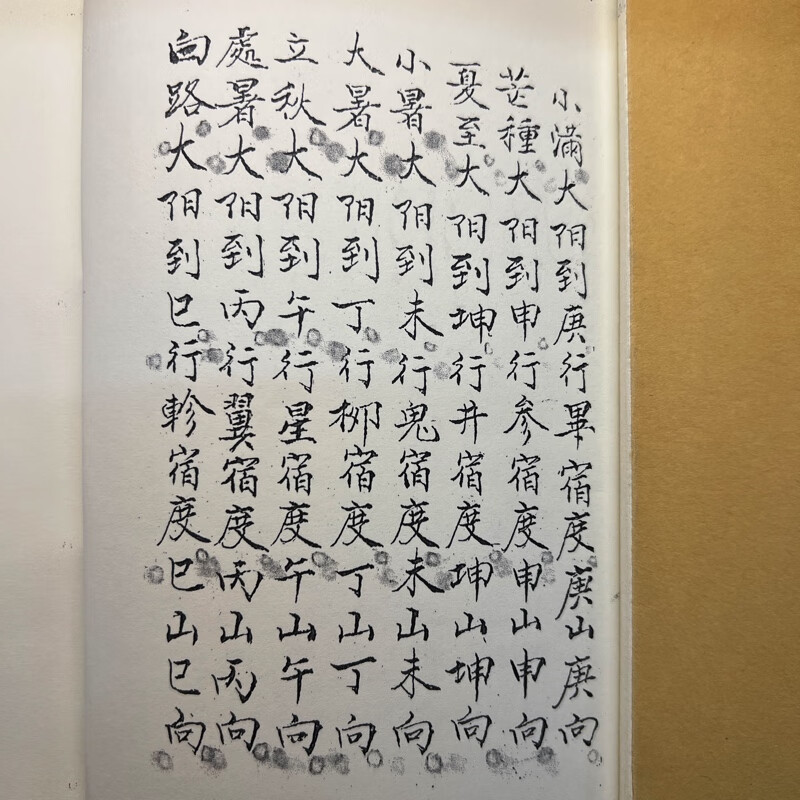 小滿大阳到庚行畢宿度庚山庚向
芒種大阳到申行參宿度申山申向
夏至大阳到坤行井宿度坤山坤向
小暑大阳到未行鬼宿度未山未向
大暑大阳到丁行柳宿度丁山丁向
立秋大阳到午行星宿度午山午向
處暑大阳到丙行翼宿度丙山丙向
白路大阳到巳行軫宿度巳山巳向